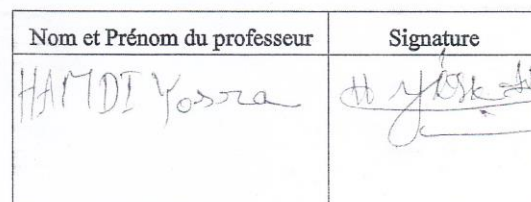 Nom et Prénom du professeur Signature
HAMDI Yosra